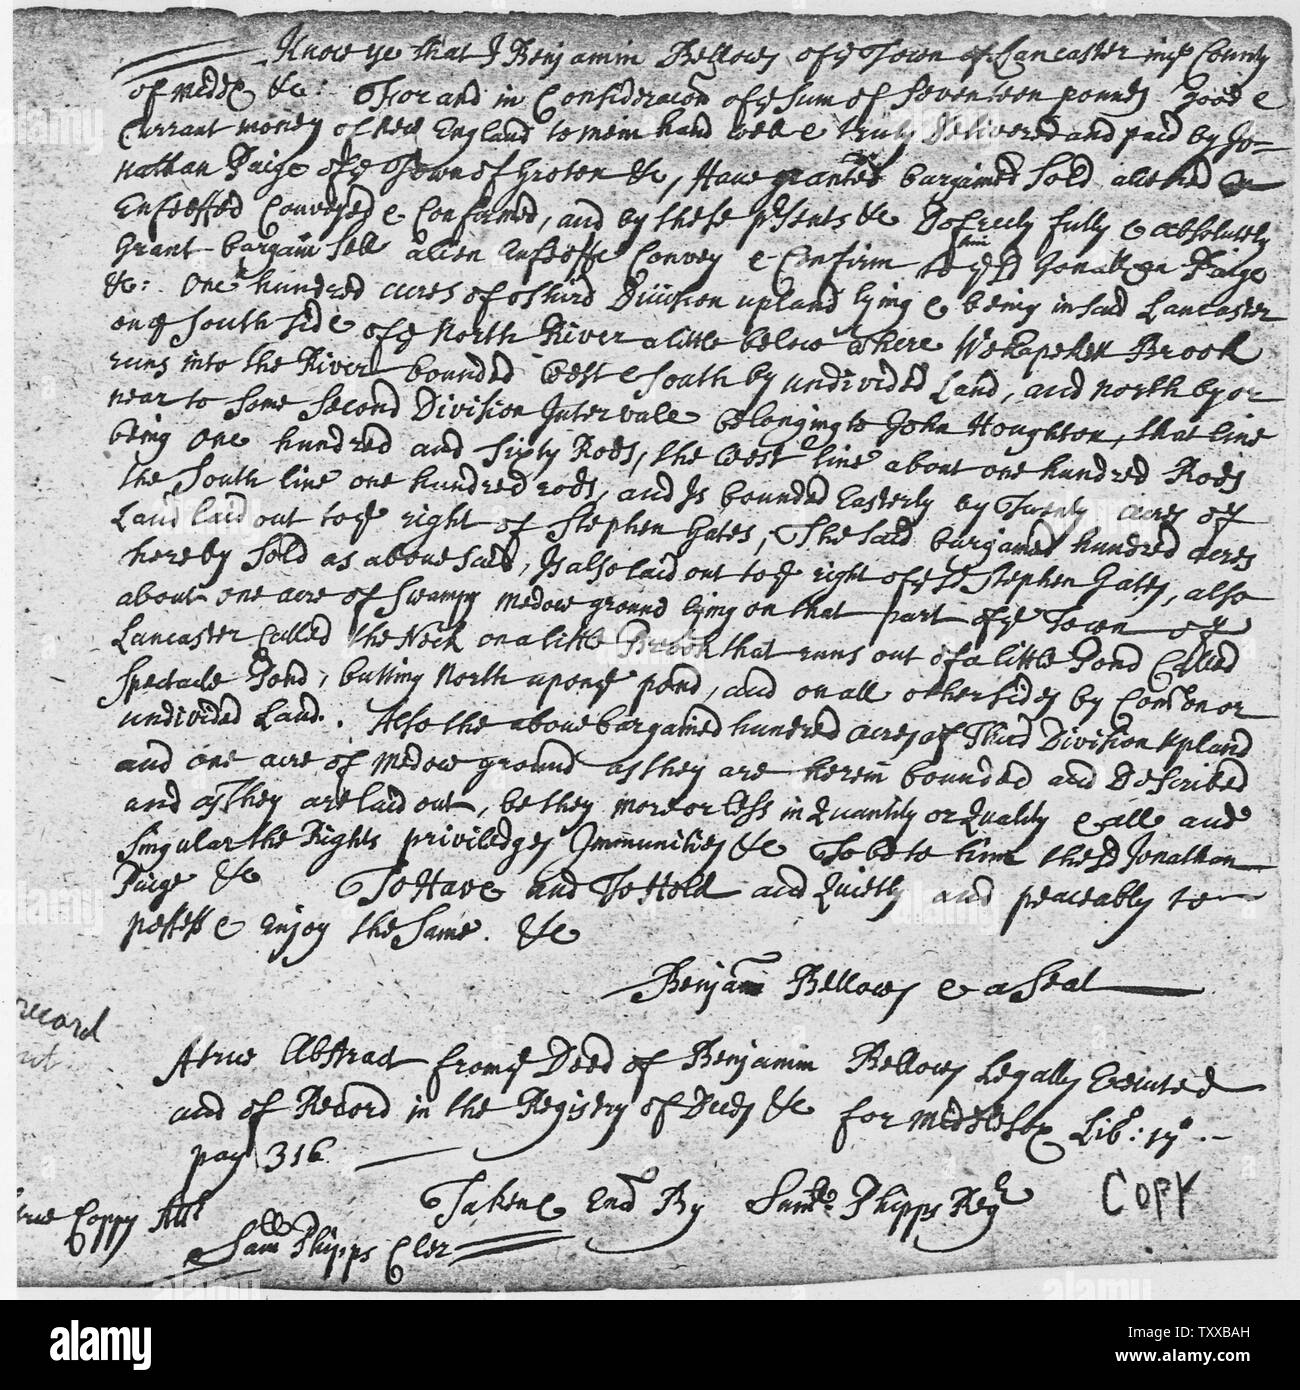 Know ye that I Benjamin Bellows of ye Town of Lancaster in ye County
of Middx &c: For and in Consideracon of ye sum of seventeen pounds Good &
Currant money of New England to me in hand well & truly delivered and paid by Jo-
nathan Paige of ye Town of Groton &c, Have granted bargained Sold aliened
Enfeoffed Conveyed & Confirmed, and by these presents &c Do freely fully & absolutely
Grant bargain Sell alien Enfeoffe Convey & Confirm to him ye sd Jonathan Paige
&c: One hundred acres of third Division upland lying & being in said Lancaster
on ye South side of ye North River a little below where Wekapeken Brook
runs into the River bounded West & South by undivided Land, and North by or
near to some second Division Intervale belonging to John Houghton, that line
being One hundred and Sixty Rods, the West line about one hundred Rods
the South line one hundred rods, and Is bounded Easterly by Twenty acres of
Land laid out to ye right of Stephen Gates, The said bargained hundred acres
hereby Sold as abovesaid, Is also laid out to ye right of ye sd Stephen Gates, also
about one acre of Swampy medow ground lying on that part of ye Town of
Lancaster Called the Neck on a little Brook that runs out of a little Pond Called
Spectacle Pond, butting North upon ye pond, and on all other sides by Comon or
undivided Land. Also the above bargained hundred acres of Third Division Upland
and one acre of medow ground as they are herein bounded and Described
and as They are laid out, be they more or less in Quantity or Quality & all and
Singular the Rights priviledges Immunities &c To be to him the sd Jonathan
Paige &c To Have and To Hold and Quietly and peaceably to
possess & Enjoy the Same. &c
Benjamin Bellows & a Seal
record
A true Abstract from ye Deed of Benjamin Bellows Legally Executed
and of Record in the Registry of Deeds &c for Middlesex Lib: 17o
pag 316
Taken End By Samll Phipps Regr
COPY
true Coppy Attt
Samll Phipps Cler
alamy
Image ID: TXXBAH
www.alamy.com